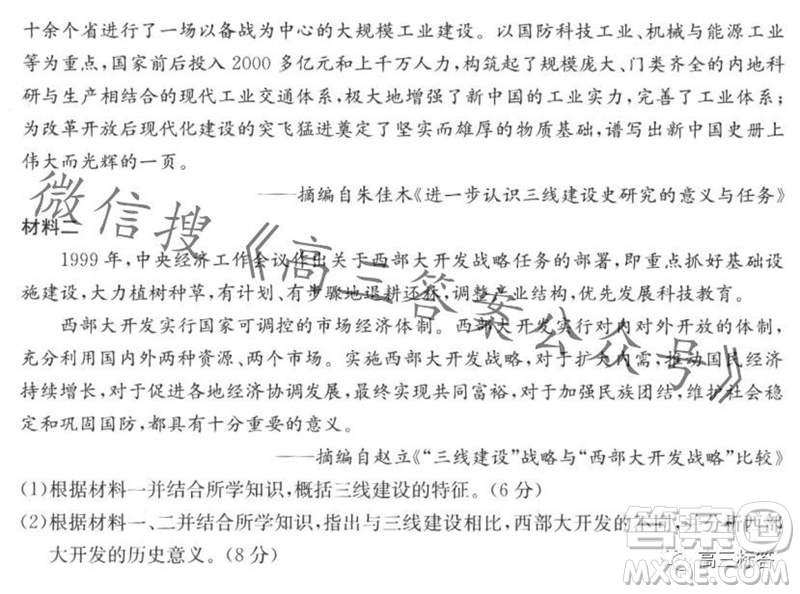 十余个省进行了一场以备战为中心的大规模工业建设。以国防科技工业、机械与能源工业
等为重点，国家前后投入 2000 多亿元和上千万人力，构筑起了规模庞大、门类齐全的内地科
研与生产相结合的现代工业交通体系，极大地增强了新中国的工业实力，完善了工业体系；
为改革开放后现代化建设的突飞猛进奠定了坚实而雄厚的物质基础，谱写出新中国史册上
伟大而光辉的一页。
——摘编自朱佳木《进一步认识三线建设史研究的意义与任务》
材料二
1999 年，中央经济工作会议作出关于西部大开发战略任务的部署，即重点抓好基础设
施建设，大力植树种草，有计划、有步骤地退耕还林，调整产业结构，优先发展科技教育。
西部大开发实行国家可调控的市场经济体制。西部大开发实行对内对外开放的体制，
充分利用国内外两种资源、两个市场。实施西部大开发战略，对于扩大内需，推动国民经济
持续增长，对于促进各地经济协调发展，最终实现共同富裕，对于加强民族团结，维护社会稳
定和巩固国防，都具有十分重要的意义。
——摘编自赵立《“三线建设”战略与“西部大开发战略”比较》
(1)根据材料一并结合所学知识，概括三线建设的特征。(6 分)
(2)根据材料一、二并结合所学知识，指出与三线建设相比，西部大开发的不同，并分析西部
大开发的历史意义。(8 分)
微信搜《高三答案公众号》
答案圈
MXQE.COM
高三标答